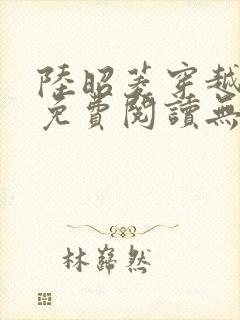 陸昭菱穿越
免費閱讀無
林歸然